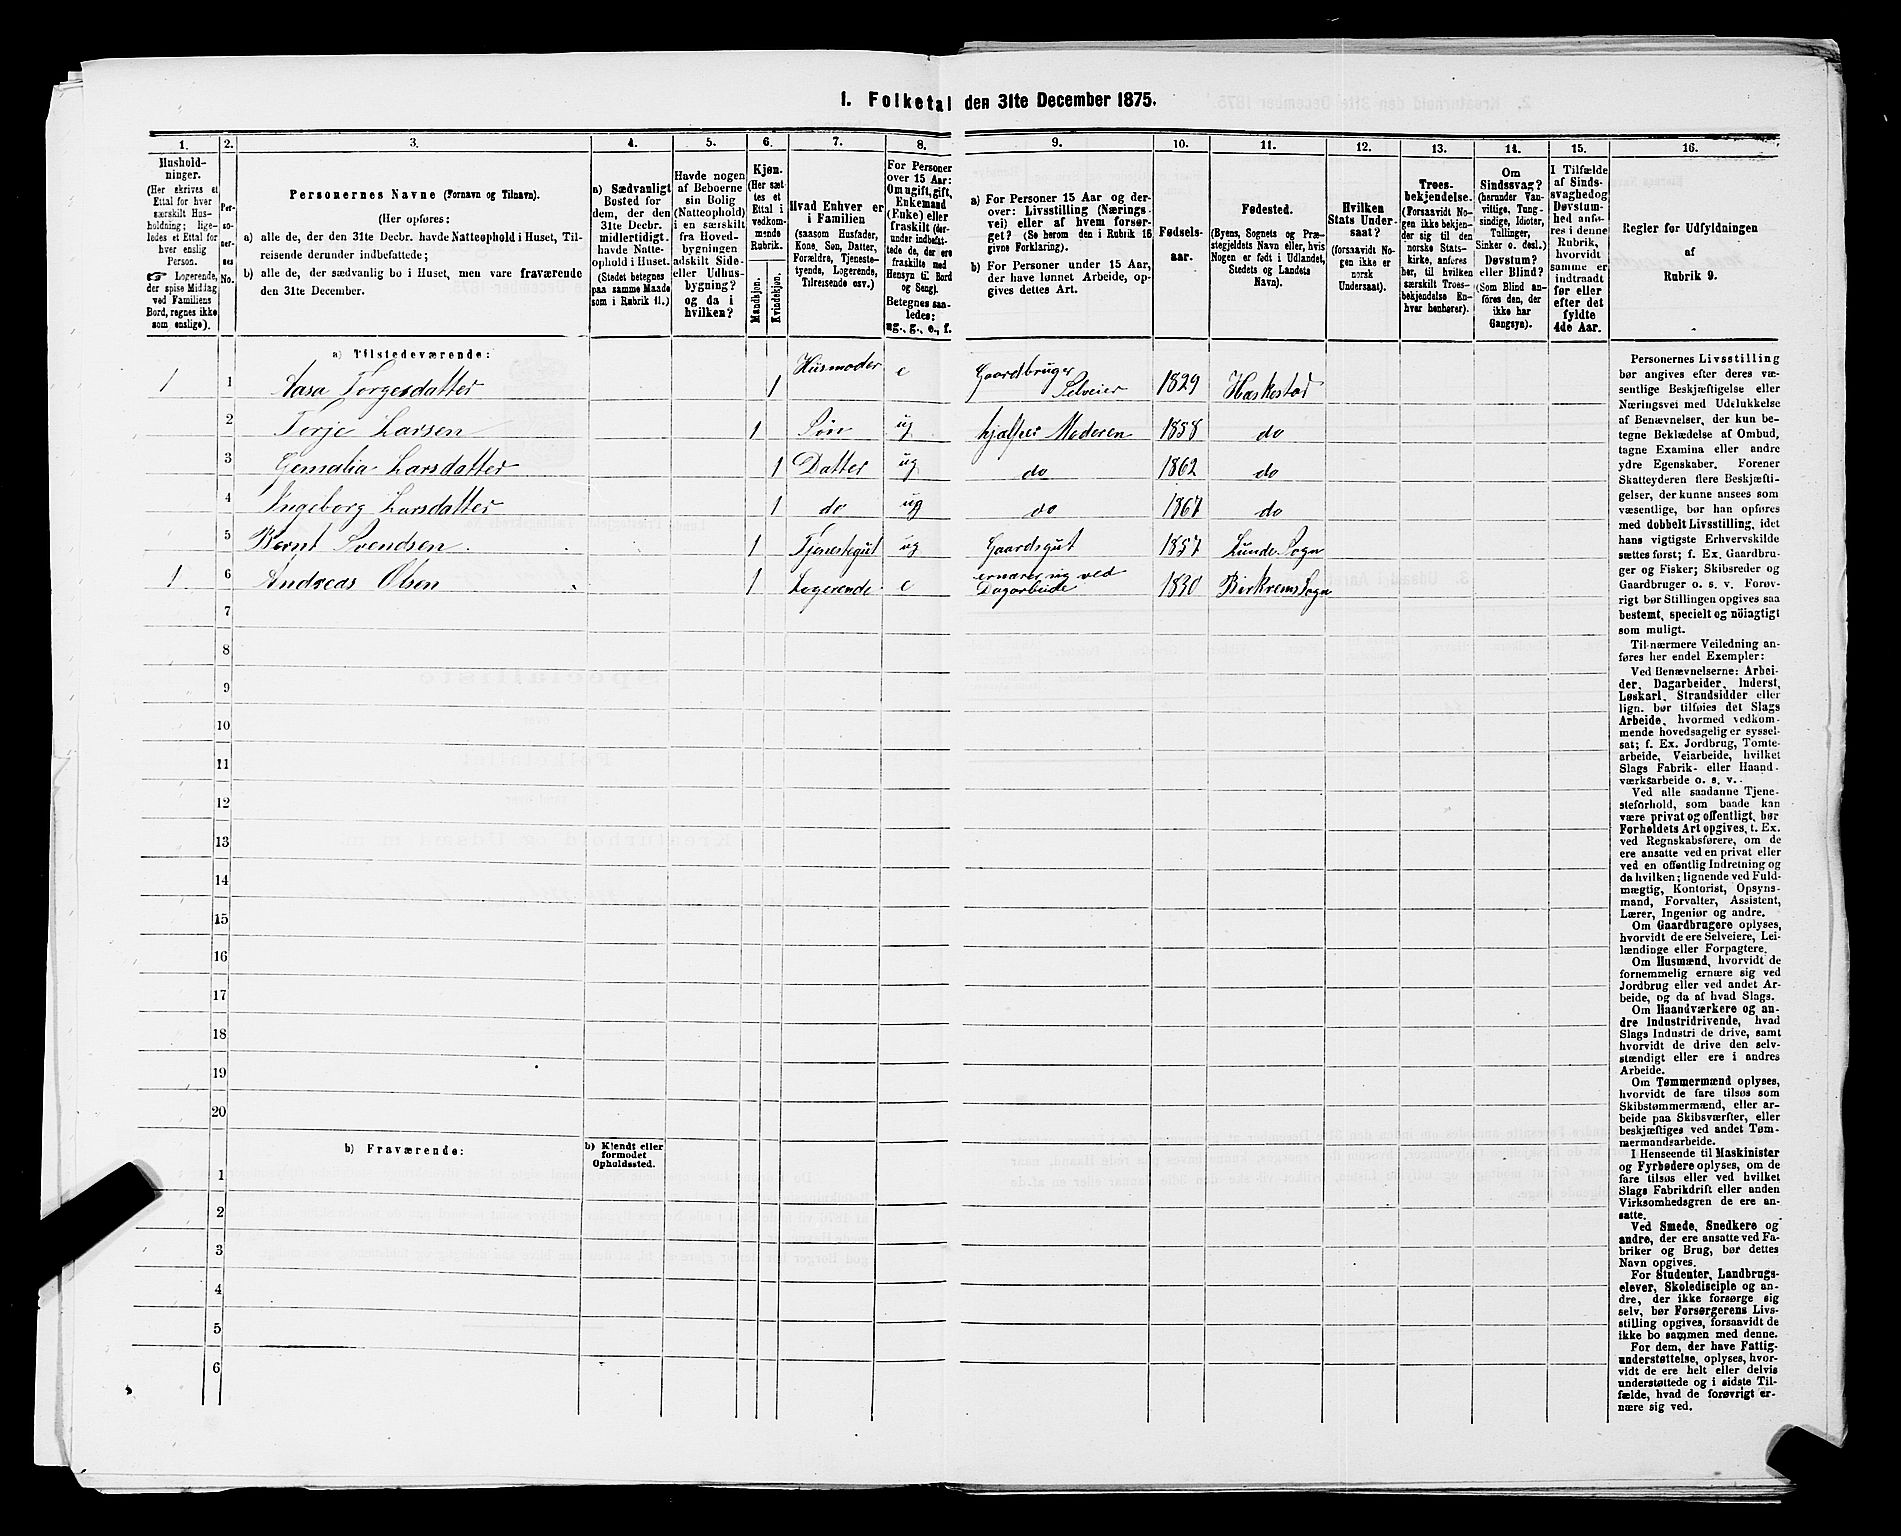 1. Folketal den 31te December 1875.
1. 2. 3. 4. 5. 6. 7. 8. 9. 10. 11. 12. 13. 14. 15. 16.
Hushold-
ninger.
(Her skrives et
Ettal for hver
særskilt Hus-
holdning; lige-
ledes et Ettal for
hver enslig
Person.
☞ Logerende,
der spise Middag
ved Familiens
Bord, regnes ikke
som enslige).
Per-
so-
ner-
nes
No.
Personernes Navne (Fornavn og Tilnavn).
(Her opføres:
a) alle de, der den 31te Decbr. havde Natteophold i Huset, Til-
reisende derunder indbefattede;
b) alle de, der sædvanlig bo i Huset, men vare fraværende
den 31te December.
a) Sædvanligt
Bosted for
dem, der den
31te Decbr.
midlertidigt
havde Natte-
ophold i Huset.
(Stedet betegnes
paa samme Maade
som i Rubrik 11.)
Havde nogen
af Beboerne
sin Bolig
(Natteophold)
i en særskilt
fra Hoved-
bygningen
adskilt Side-
eller Udhus-
bygning?
og da i
hvilken?
Kjøn.
(Her sæt-
tes et
Ettal i
vedkom-
mende
Rubrik.
Mandkjøn.
Kvindekjøn.
Hvad Enhver er
i Familien
(saasom Husfader,
Kone, Søn, Datter,
Forældre, Tjeneste-
tyende, Logerende,
Tilreisende osv.)
For Personer
over 15 Aar:
Om ugift, gift,
Enkemand
(Enke) eller
fraskilt (der-
under indbefat-
tede de, der ere
fraskilte med
Hensyn til Bord
og Seng).
Betegnes saa-
ledes:
ug., g., e., f.
a) For Personer 15 Aar og der-
over: Livsstilling (Nærings-
vei) eller af hvem forsør-
get? (Se herom den i Rubrik 16
givne Forklaring).
b) For Personer under 15 Aar,
der have lønnet Arbeide, op-
gives dettes Art.
Fødsels-
aar.
Fødested.
(Byens, Sognets og Præ-
stegjeldets Navn eller, hvis
Nogen er født i Udlandet,
Stedets og Landets
Navn).
Hvilken
Stats Under-
saat?
(forsaavidt No-
gen ikke er
norsk
Undersaat).
Troes-
bekjendelse.
(Forsaavidt No-
gen ikke bekjen-
der sig til den
norske Stats-
kirke, anføres
her, til hvilken
særskilt Troes-
bekjendelse En-
hver henhører).
Om
Sindssvag?
(herunder Van-
vittige, Tung-
sindige, Idioter,
Tullinger,
Sinker o. desl.)
Døvstum?
eller Blind?
(Som Blind an-
føres den, der
ikke har
Gangsyn).
I Tilfælde
af Sinds-
svaghed og
Døvstum-
hed anfø-
res i denne
Rubrik,
hvorvidt
samme er
indtraadt
før eller
efter det
fyldte
4de Aar.
Regler for Udfyldningen
af
Rubrik 9.
a) Tilstedeværende:
1 1 Aasa Torgersdatter 1 Husmoder e Gaardbruger Selveier 1829 Heskestad
2 Terje Larsen 1 Søn ug hjælper Moderen 1858 do
3 Gemalia Larsdatter 1 Datter ug do 1862 do
4 Ingeborg Larsdatter 1 do ug do 1867 do
5 Bernt Svendsen 1 Tjenestegut ug Gaardsgut 1857 Lunde Sogn
1 6 Andreas Olsen 1 Logerende e ernærer sig ved Dagarbeide 1830 Birkrems Sogn
7
8
9
10
11
12
13
14
15
16
17
18
19
20
b) Fraværende:
b) Kjendt eller
formodet
Opholdssted.
1
2
3
4
5
6
Personernes Livsstilling
bør angives efter deres væ-
sentlige Beskjæftigelse eller
Næringsvei med Udelukkelse
af Benævnelser, der kun be-
tegne Beklædelse af Ombud,
tagne Examina eller andre
ydre Egenskaber. Forener
Skatteyderen flere Beskjæfti-
gelser, der kunne ansees som
væsentlige, bør han opføres
med dobbelt Livsstilling, idet
hans vigtigste Erhvervskilde
sættes først; f. Ex. Gaardbru-
ger og Fisker; Skibsreder og
Gaardbruger o. s. v. Forøv-
rigt bør Stillingen opgives saa
bestemt, specielt og nöiagtigt
som muligt.
Til nærmere Veiledning an-
føres her endel Exempler:
Ved Benævnelserne: Arbei-
der, Dagarbeider, Inderst,
Løskarl, Strandsidder eller
lign. bør tilføies det Slags
Arbeide, hvormed vedkom-
mende hovedsagelig er syssel-
sat; f. Ex. Jordbrug, Tomte-
arbeide, Veiarbeide, hvilket
Slags Fabrik- eller Haand-
værksarbeide o. s. v.
Ved alle saadanne Tjene-
steforhold, som baade kan
være privat og offentligt, bør
Forholdets Art opgives, t. Ex.
ved Regnskabsførere, om de
ere ansatte ved en privat eller
ved en offentlig Indretning og
da hvilken; lignende ved Fuld-
mægtig, Kontorist, Opsyns-
mand, Forvalter, Assistent,
Lærer, Ingeniør og andre.
Om Gaardbrugere oplyses,
hvorvidt de ere Selveiere, Lei-
lændinge eller Forpagtere.
Om Husmænd, hvorvidt de
fornemmelig ernære sig ved
Jordbrug eller ved andet Ar-
beide, og da af hvad Slags.
Om Haandværkere og an-
dre Industridrivende, hvad
Slags Industri de drive, samt
hvorvidt de drive den selv-
stændigt eller ere i andres
Arbeide.
Om Tømmermænd oplyses,
hvorvidt de fare tilsøs som
Skibstømmermænd, eller ar-
beide paa Skibsværfter, eller
beskjæftiges ved andet Tøm-
mermandsarbeide.
I Henseende til Maskinister
og Fyrbødere oplyses, om de
fare tilsøs eller ved hvilket
Slags Fabrikdrift eller anden
Virksomhedsgren de ere an-
satte.
Ved Smede, Snedkere og
andre, der ere ansatte ved Fa-
briker og Brug, bør dettes
Navn opgives.
For Studenter, Landbrugs-
elever, Skoledisciple og an-
dre, der ikke forsørge sig
selv, bør Forsørgerens Livs-
stilling opgives, forsaavidt de
ikke bo sammen med denne.
For dem, der have Fattig-
understøttelse, oplyses, hvor-
vidt de ere helt eller delvis
understøttede og i sidste Til-
fælde, hvad de forøvrigt er-
nære sig ved.